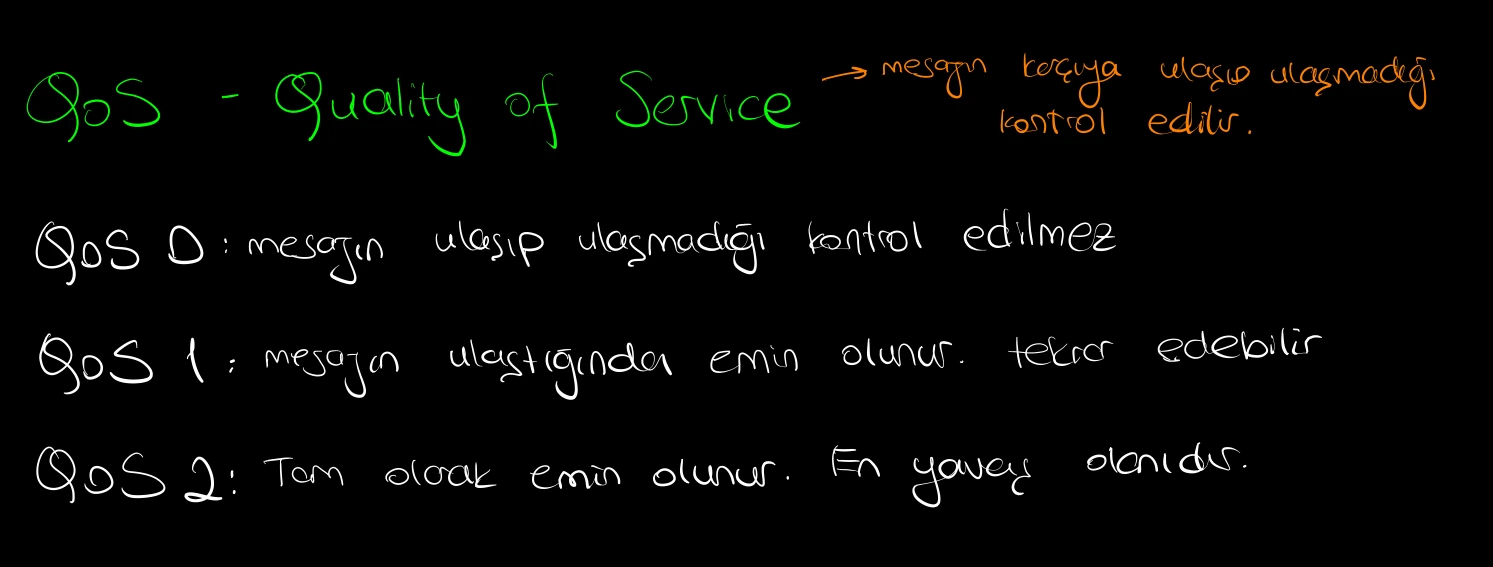 QoS - Quality of Service → mesajın karşıya ulaşıp ulaşmadığı
kontrol edilir.
QoS 0: mesajın ulaşıp ulaşmadığı kontrol edilmez
QoS 1: mesajın ulaştığından emin olunur. tekrar edebilir
QoS 2: Tam olarak emin olunur. En yavaş olanıdır.